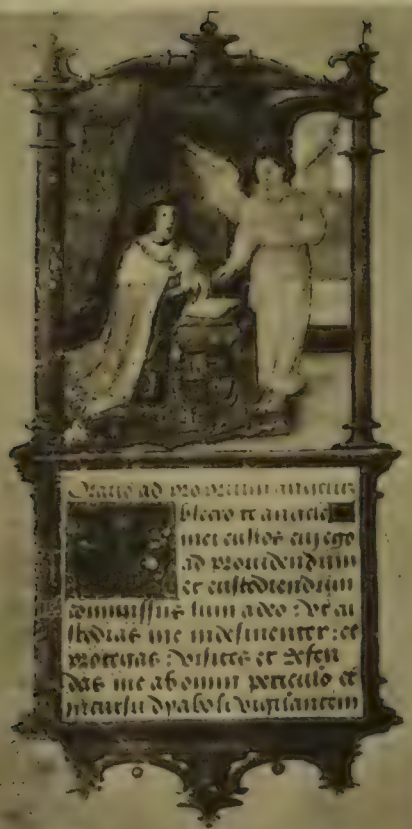 Oratio ad proprium angelum
bsecro te angele
mei custos cui ego
ad providendum
et custodiendum
commissus sum a deo : vt cu
stodias me indesinenter : et
protegas : visites et defen
das me ab omni periculo et
incursu dyaboli vigilantem